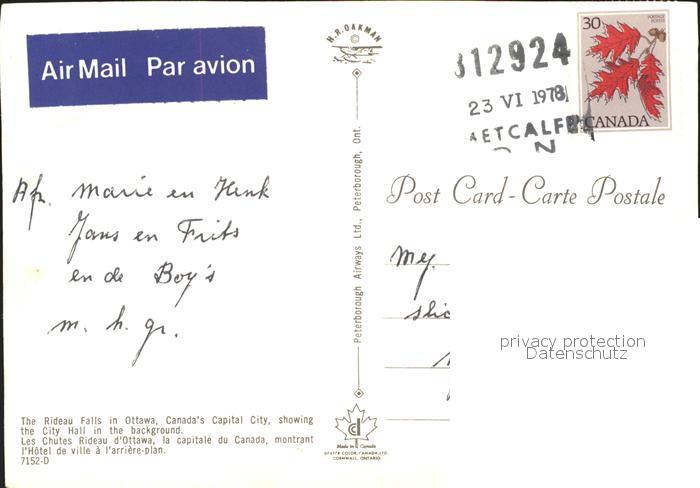 Air Mail Par avion
H. R. OAKMAN
©
312924
23 VI 1978
METCALFE
ON
30
POSTAGE
POSTES
CANADA
Afz. Marie en Henk
Jans en Frits
en de Boy's
m. h. gr.
Peterborough Airways Ltd., Peterborough, Ont.
Post Card - Carte Postale
privacy protection
Datenschutz
The Rideau Falls in Ottawa, Canada's Capital City, showing
the City Hall in the background.
Les Chutes Rideau d'Ottawa, la capitale du Canada, montrant
l'Hôtel de ville à l'arrière-plan.
7152-D
Made in Canada
CORNWALL, ONTARIO